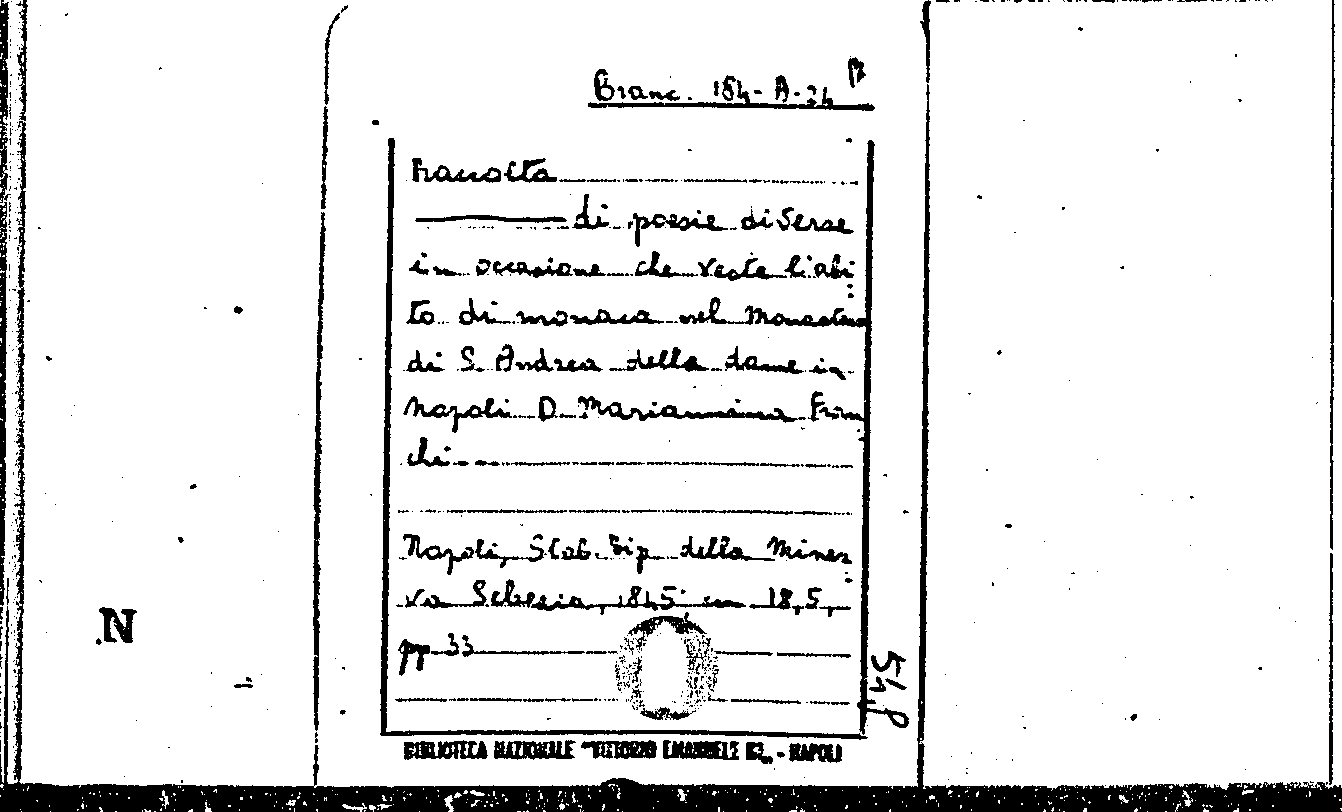 Branc. 184-A-24
Raccolta
di poesie diverse
in occasione che veste l'abi
to di monaca nel Monastero
di S. Andrea delle dame in
Napoli D. Mariannina Fran
chi---
Napoli, Stab. Tip. della Miner
va Sebezia, 1845; cm 18,5,
pp. 33
BIBLIOTECA NAZIONALE "VITTORIO EMANUELE III" - NAPOLI
N